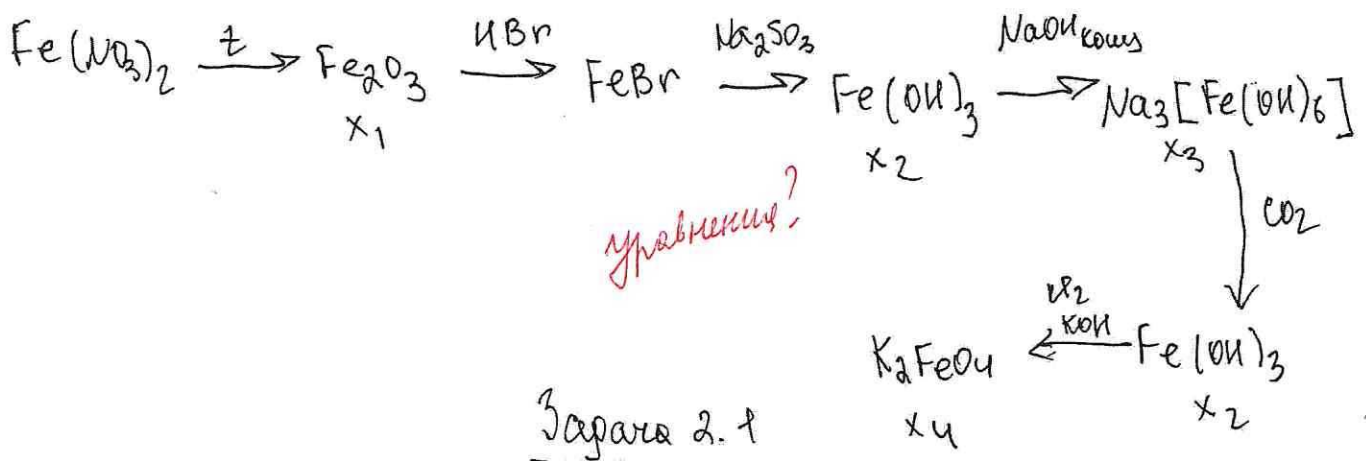 Fe(NO3)2 t→ Fe2O3 HBr→ FeBr Na2SO3→ Fe(OH)3 NaOH конц→ Na3[Fe(OH)6]
x1 x2 x3
уравнения?
CO2
K2FeO4 Cl2 KOH← Fe(OH)3
x4 x2
Задача 2.1